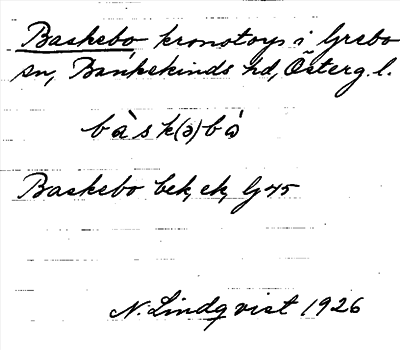 Baskebo kronotorp i Grebo
sn, Bankekinds hd, Österg. l.
bàsk(ə)bò
Baskebo bek, ek, G 45
N. Lindqvist 1926